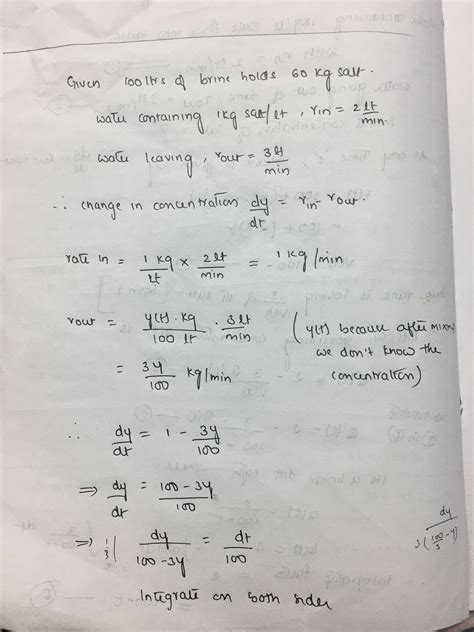 Given 100 ltrs of brine holds 60 kg salt.
water containing 1kg salt/lt , rin = 2 lt/min
water leaving, rout = 3lt/min
∴ change in concentration dy/dt = rin - rout.
rate in = 1 kg/lt × 2 lt/min = 1 kg/min
rout = y(t). kg/100 lt . 3 lt/min ( y(t) because after mixing
we don't know the
= 3y/100 kg/min concentration)
∴ dy/dt = 1 - 3y/100
⇒ dy/dt = 100-3y/100
⇒ 1/3 | dy/100-3y = dt/100 dy/3(100/3-y)
Integrate on both sides